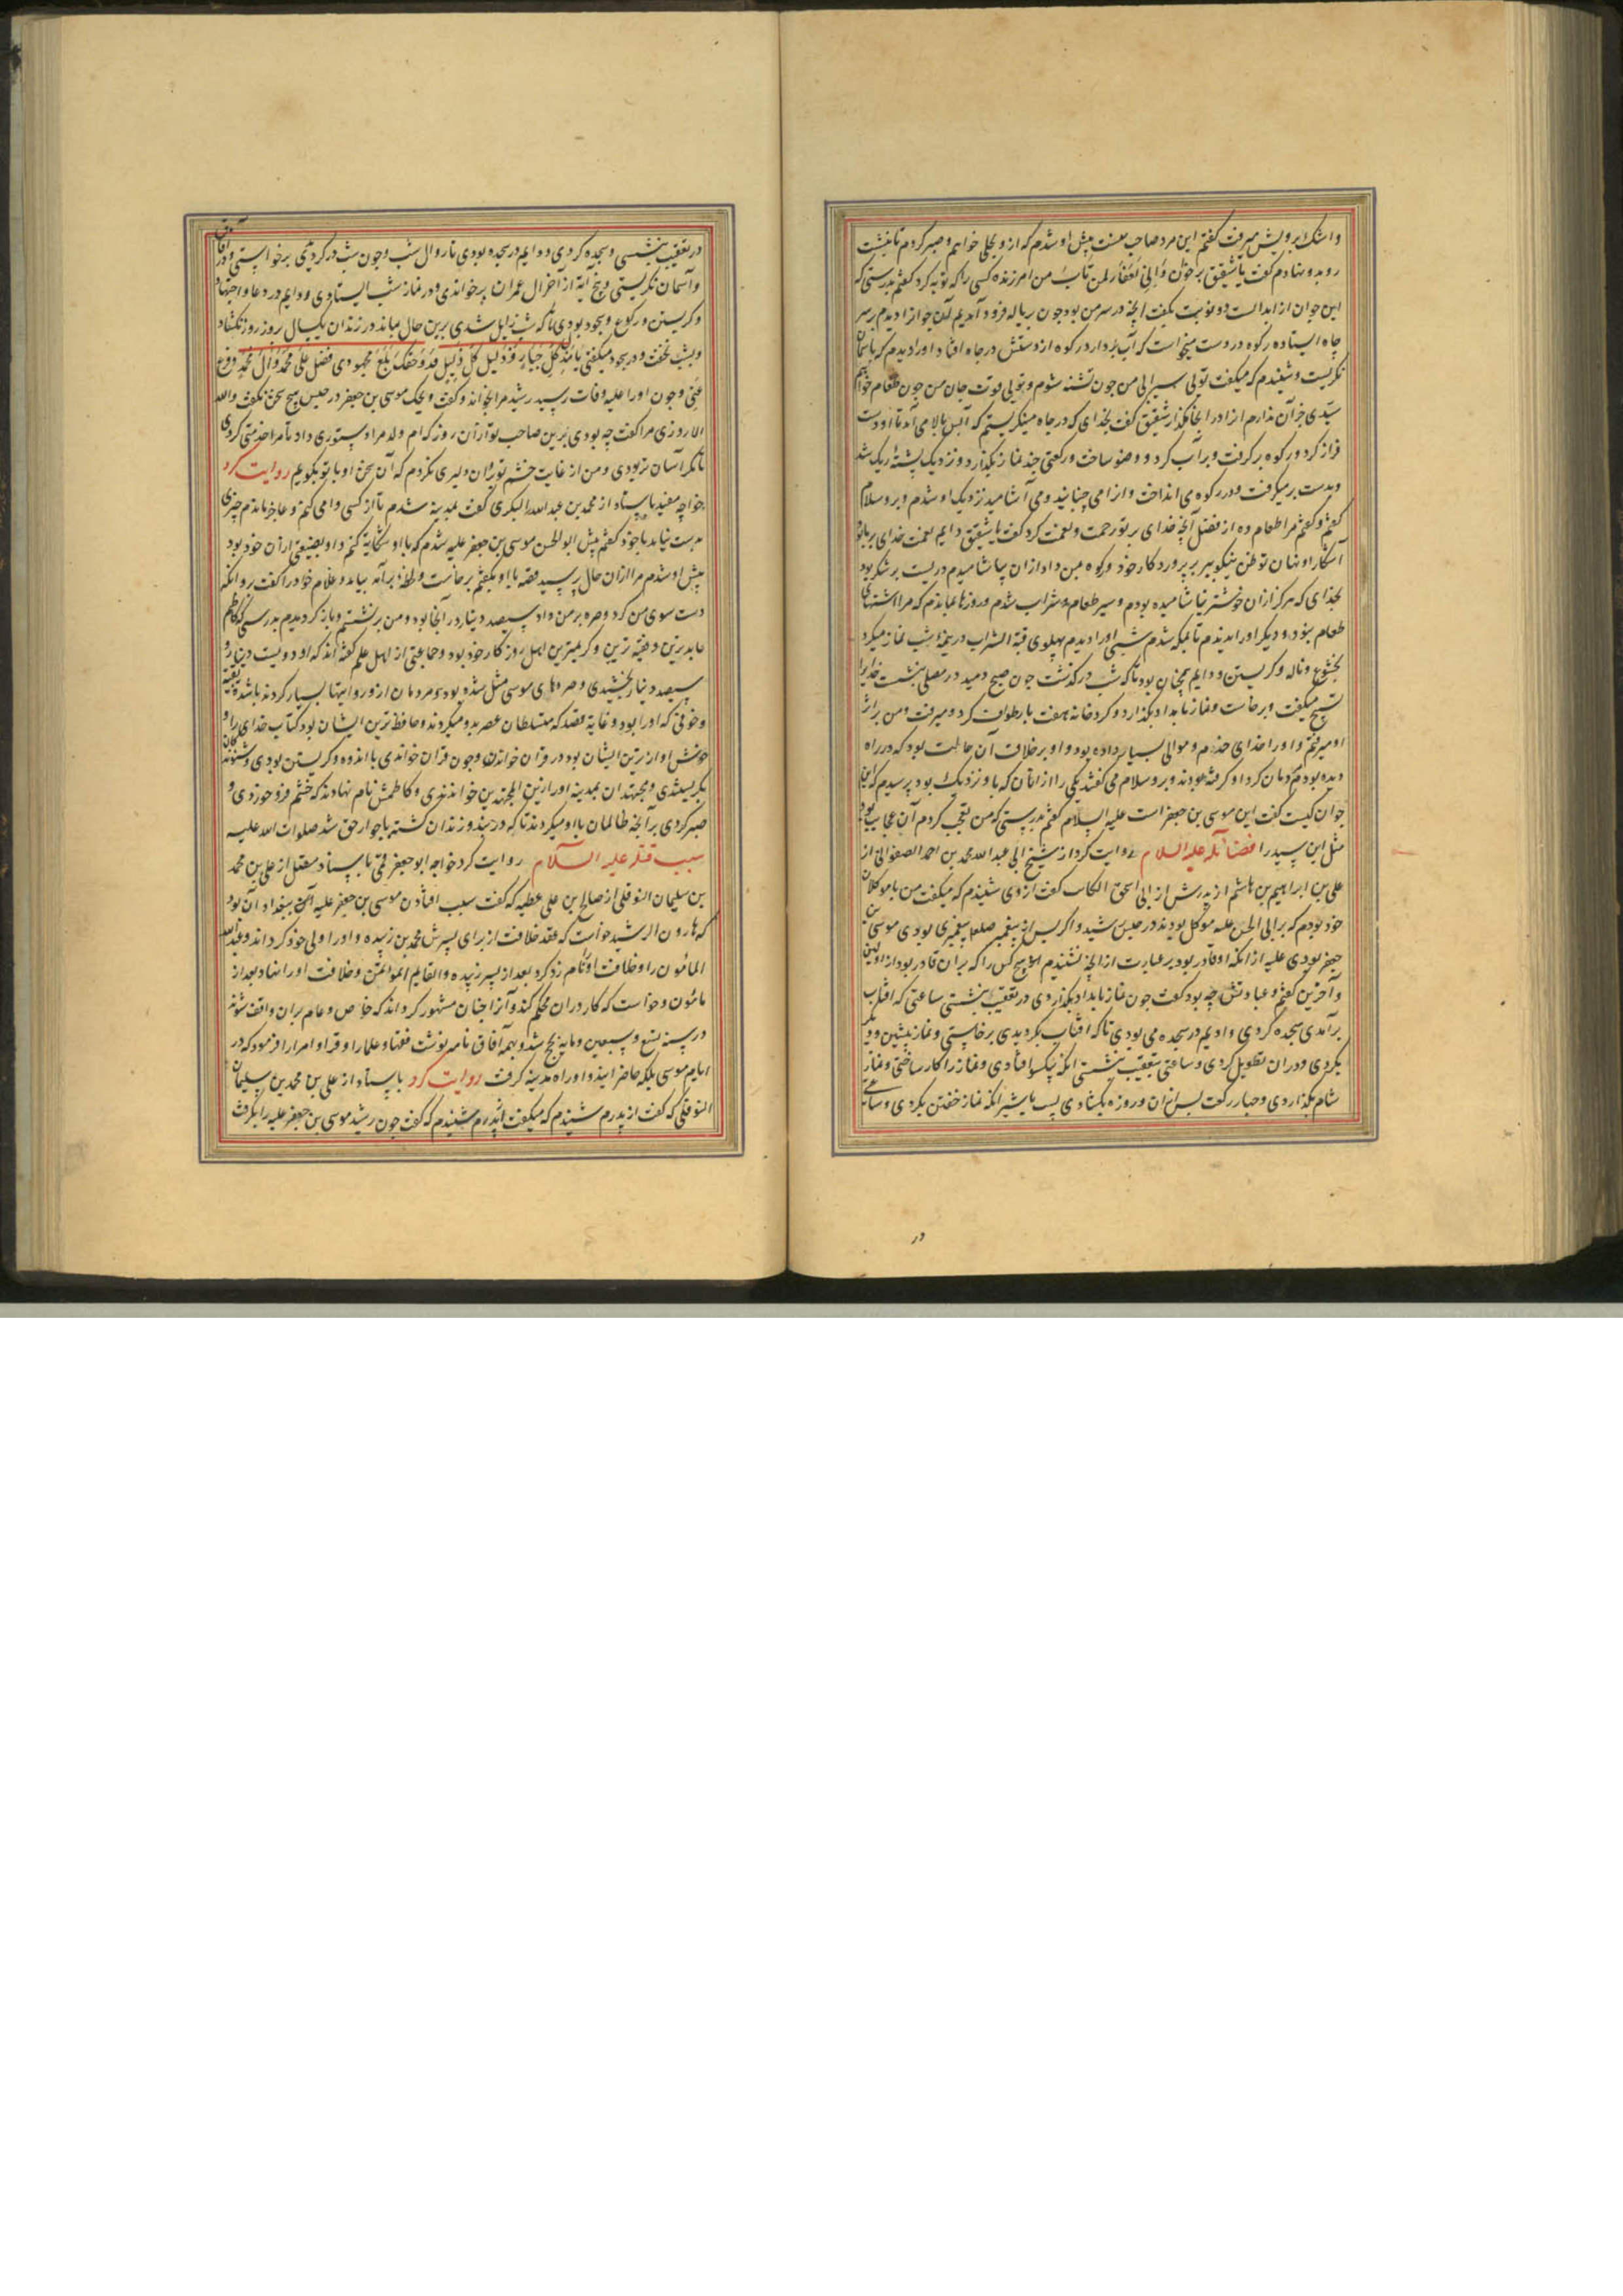 و اشک بر رویش میرفت گفتم این مرد صاحب پیش او شدم که از وی بحلی خواهم و صبر کردم تا بنشست
رو بدو نهادم گفت یا شقیق برخوان وَ اِنّی لَغَفّار لمن تابَ من امرزنده کسی را که توبه کرد گفتم بدرستی که
این جوان از ابدالست دو نوبت بگفت آنچه در سر من بود چون بزباله فرود آمدیم آن جوانرا دیدم بر سر
چاه ایستاده رکوه در دست میخواست که آب بردارد رکوه از دستش در چاه افتاد او را دیدم که باسمان
نگریست و شنیدم که میگفت تویی سیرابی من چون تشنه شوم و تویی قوت جان من چون طعام خواهم
سیّدی جز آن ندارم از ادر اینجا مگذار شقیق گفت بخدای که در چاه مینگریستم که آبش بالا می آمد تا او دست
فراز کرد و رکوه برگرفت و پر آب کرد و وضو ساخت و رکعتی چند نماز بگذارد و نزدیک پشتهٔ ریگ شد
و بدست بر میگرفت و در رکوه می انداخت و انرا می جنبانید و می آشامید نزدیک او شدم و بر و سلام
گفتم و گفتم مرا طعام ده از فضل آنچه خدای بر تو رحمت و نعمت کرد گفت یا شقیق دایم نعمت خدای بر ما بود
آشکارا و نهان تو ظن نیکو ببر بپروردگار خود و رکوه بمن داد ازان بیاشامیدم در پست بر شکر بود
بخدای که هرگز ازان خوشتر نیاشامیده بودم و سیر طعام و شراب شدم و روزها بماندم که مرا اشتهای
طعام نبود و دیگر او را ندیدم تا بمکه شدم شبی او را دیدم پهلوی قبة الشراب در نیمهٔ شب نماز میکرد
بخشوع و ناله و گریستن و دایم همچنان بود تا که شب در گذشت چون صبح دمید در مصلی بنشست خدایرا
تسبیح میگفت و برخاست و نماز بامداد بگذارد و گرد خانه هفت بار طواف کرد و میرفت و من بر اثر
او میرفتم و او را خدای خدم و موالی بسیار داده بود و او بر خلاف آن حالت بود که در راه
دیده بودم و مردمان گرد او گرفته بودند و برو سلام می گفتند یکی را از انان که باو نزدیک بود پرسیدم که این
جوان کیست گفت این موسی بن جعفر است علیه السلام گفتم بدرستی که من تعجب کردم آن عجایب بود
مثل این سید را فضائله علیه السلام روایت کرد از شیخ ابی عبد الله محمد بن احمد الصفوانی از
علی بن ابراهیم بن هاشم از پدرش از ابی اسحق الکاتب گفت از وی شنیدم که میگفت من با موکلان
خود بودم که بر ابی الحسن علیه موکل بودند در حبس رشید و اگر پس از پیغمبر صلعم پیغمبری بودی موسی بن
جعفر بودی علیه از انکه او قادر بود بر عبادت از انچه نشنیدم هیچ کس را که بران قادر بود از اولین
و آخرین گفتم و عبادتش چه بود گفت چون نماز بامداد بگذاردی در تعقیب بنشستی ساعتی که افتاب
برآمدی سجده کردی و دایم در سجده می بودی تا که افتاب بگردیدی برخاستی و نماز پیشین و دیگر
بکردی و دران تطویل کردی و ساعتی بتعقیب بنشستی انکه نیکو افتادی و نماز را کار ساختی و نماز
شام بگذاردی و چهار رکعت پس ازان و روزه بگشادی پس بشیر انکه نماز خفتن بکردی و ساعتی
در
در تعقیب بنشستی و سجده کردی و دایم در سجده بودی تا زوال شب و چون شب در گردیدی برخواستی و در آفاق
و آسمان نگریستی و پنج آیه از آخر ال عمران برخواندی و در نماز شب ایستادی و دایم در دعا و اجتهاد
و گریستن و رکوع و سجود بودی تا که شب زایل شدی برین حال بماند در زندان یکسال روز روزه نگشاد
و بشب نخفت و در سجود میگفتی یا مُذِلَّ کُلِّ جَبّارٍ وَ مُعِزَّ کُلِّ ذلیلٍ قَد وَحَقِّکَ بَلَغَ مجهودی فَصَلِّ علی محمّدٍ وَ آل محمّدٍ و فرّج
عنّی و چون او را علیه وفات رسید رشید مرا بخواند و گفت ویحک موسی بن جعفر در حبس هیچ سخن نگفت والله
الا روزی مرا گفت چه بودی برین صاحب تو ازان روز که ام ولد مرا دستوری داد تا مرا خدمتی کردی
تا مگر آسان تر بودی و من از غایت خشم تو بران دلیری نکردم که آن سخن او با تو بگویم روایت کرد
خواجه مفید باسناد از محمد بن عبد الله البکری گفت بمدینه شدم تا از کسی وامی کنم و عاجز ماندم چیزی
بدست نیامد با خود گفتم پیش ابو الحسن موسی بن جعفر علیه شدم که با او شکایه کنم و او بضیعتی ازان خود بود
پیش او شدم مرا ازان حال پرسید قصه با او بگفتم برخاست و لحظهٔ برآمد بیامد و غلام خود را گفت رو انکه
دست سوی من کرد و صره بمن داد سیصد دینار در آنجا بود و من برنشستم و باز گردیدم بدرستی که کاظم
عابدترین و فقیه ترین و کریمترین اهل روزگار خود بود و جماعتی از اهل علم گفته اند که او دویست دینار و
سیصد دینار بخشیدی و صره های موسی مثل شده بود و مردمان ازو روایتها بسیار کردند باشد تقیه
و خوفی که او را بود و غایة قصد که متسلطان عصر بدو میکردند و حافظ ترین ایشان بود کتاب خدای را و
خوش اوازترین ایشان بود در قران خواندن و چون قران خواندی با اندوه و گریستن بودی و شنوندگان
بگریستندی و مجتهدان بمدینه او را زین المجتهدین خواندندی و کاظمش نام نهادند که خشم فرو خوردی و
صبر کردی بر آنچه ظالمان با او میکردند تا که در بند و زندان کشته باجوار حق شد صلوات الله علیه
سبب قتله علیه السلام روایت کرد خواجه ابو جعفر قمی باسناد متصل از علی بن محمد
بن سلیمان النوفلی از صالح بن علی عطیه که گفت سبب افتادن موسی بن جعفر علیه ببغداد آن بود
که هارون الرشید خواست که عقد خلافت از برای پسرش محمد بن زبیده و او را ولی خود گرداند و عبدالله
المأمون را و خلافت او نام زد کرد بعد از پسر زبیده و القایم المؤتمن و خلافت او را نهاد بعد از
مامون و خواست که کار دران محکم کند و آنرا چنان مشهور گرداند که خاص و عام بران واقف شوند
در سنه تسع و سبعین و مایه بحج شد و بهمه آفاق نامه نوشت فقها و علما را و قرا و امرا را فرمود که در
ایام موسی بمکه حاضر ایند و او راه مدینه گرفت روایت کرد باسناد از علی بن محمد بن سلیمان
النوفلی که گفت از پدرم شنیدم که میگفت از پدرم شنیدم که گفت چون رشید موسی بن جعفر علیه را بگرفت